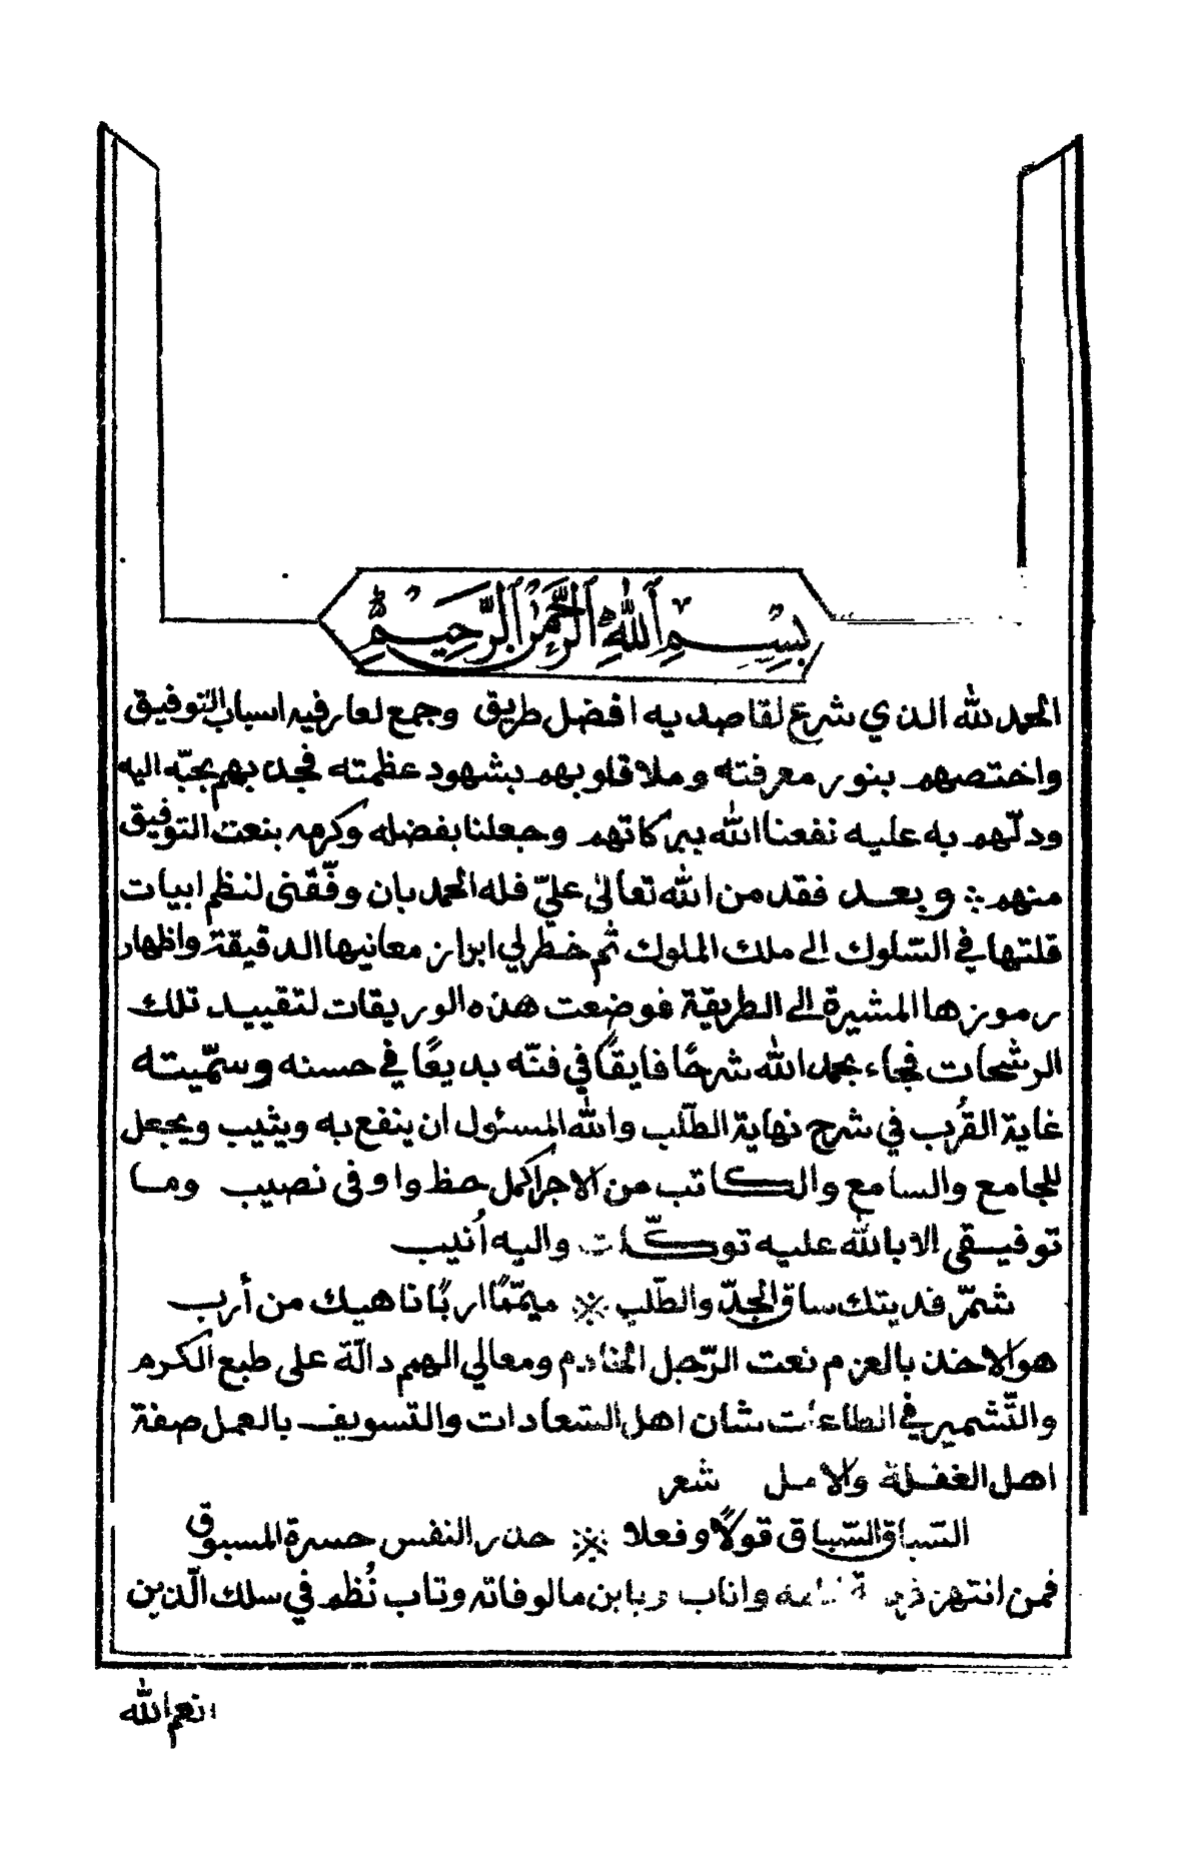 بِسْمِ اللَّهِ الرَّحْمَنِ الرَّحِيمِ
الحمد لله الذي شرع لقاصديه افضل طريق وجمع لعارفيه اسباب التوفيق
واختصهم بنور معرفته وملا قلوبهم بشهود عظمته فجذبهم بحبّه اليه
ودلّهم به عليه نفعنا الله ببركاتهم وجعلنا بفضله وكرمه بنعت التوفيق
منهم ۞ وبعد فقد من الله تعالى عليّ فله الحمد بان وفّقنى لنظم ابيات
قلتها في السّلوك الى ملك الملوك ثم خطر لي ابراز معانيها الدقيقة واظهار
رموزها المشيرة الى الطريقة فوضعت هذه الوريقات لتقييد تلك
الرشحات فجاء بحمد الله شرحًا فايقًا في فنّه بديعًا في حسنه وسمّيته
غاية القُرب في شرح نهاية الطّلب والله المسئول ان ينفع به ويثيب ويجعل
للجامع والسامع والكاتب من الاجر اكمل حظ واوفى نصيب وما
توفيقى الا بالله عليه توكّلت واليه اُنيب
شمّر فديتك ساق الجدّ والطّلبِ ※ ميمّمًا اربًا ناهيك من أرب
هو الاخذ بالعزم نعت الرّجل الحازم ومعالي الهمم دالّة على طبع الكرم
والتّشمير في الطاعات شان اهل السّعادات والتسويف بالعمل صفة
اهل الغفلة والامل شعر
السّباق السّباق قولًا وفعلا ※ حذر النفس حسرة المسبوق
فمن انتهز واناب مالوفاته وتاب نُظم في سلك الّذين
انعم الله